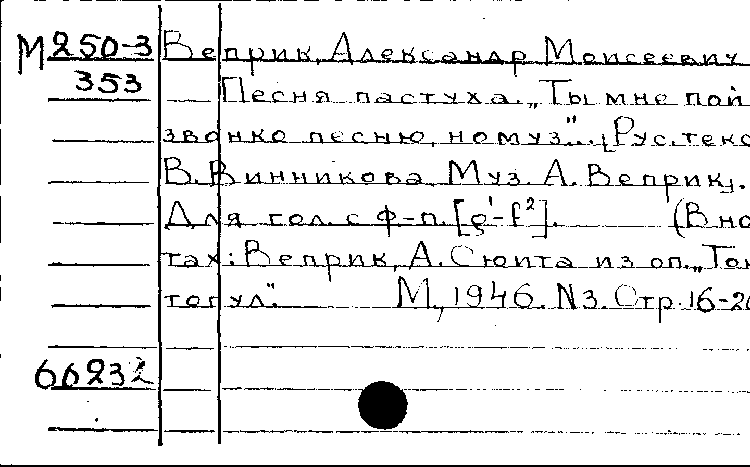 М250-3 Веприк, Александр Моисеевич
353 Песня пастуха. „Ты мне пой
звонко песню, комуз"... [Рус. текс
В. Винникова. Муз. А. Веприк].
Для гол. с ф-п. [e¹-f²]. (В но
тах: Веприк, А. Сюита из оп. „Ток
тогул". М., 1946. N3. Стр. 16-20
66232